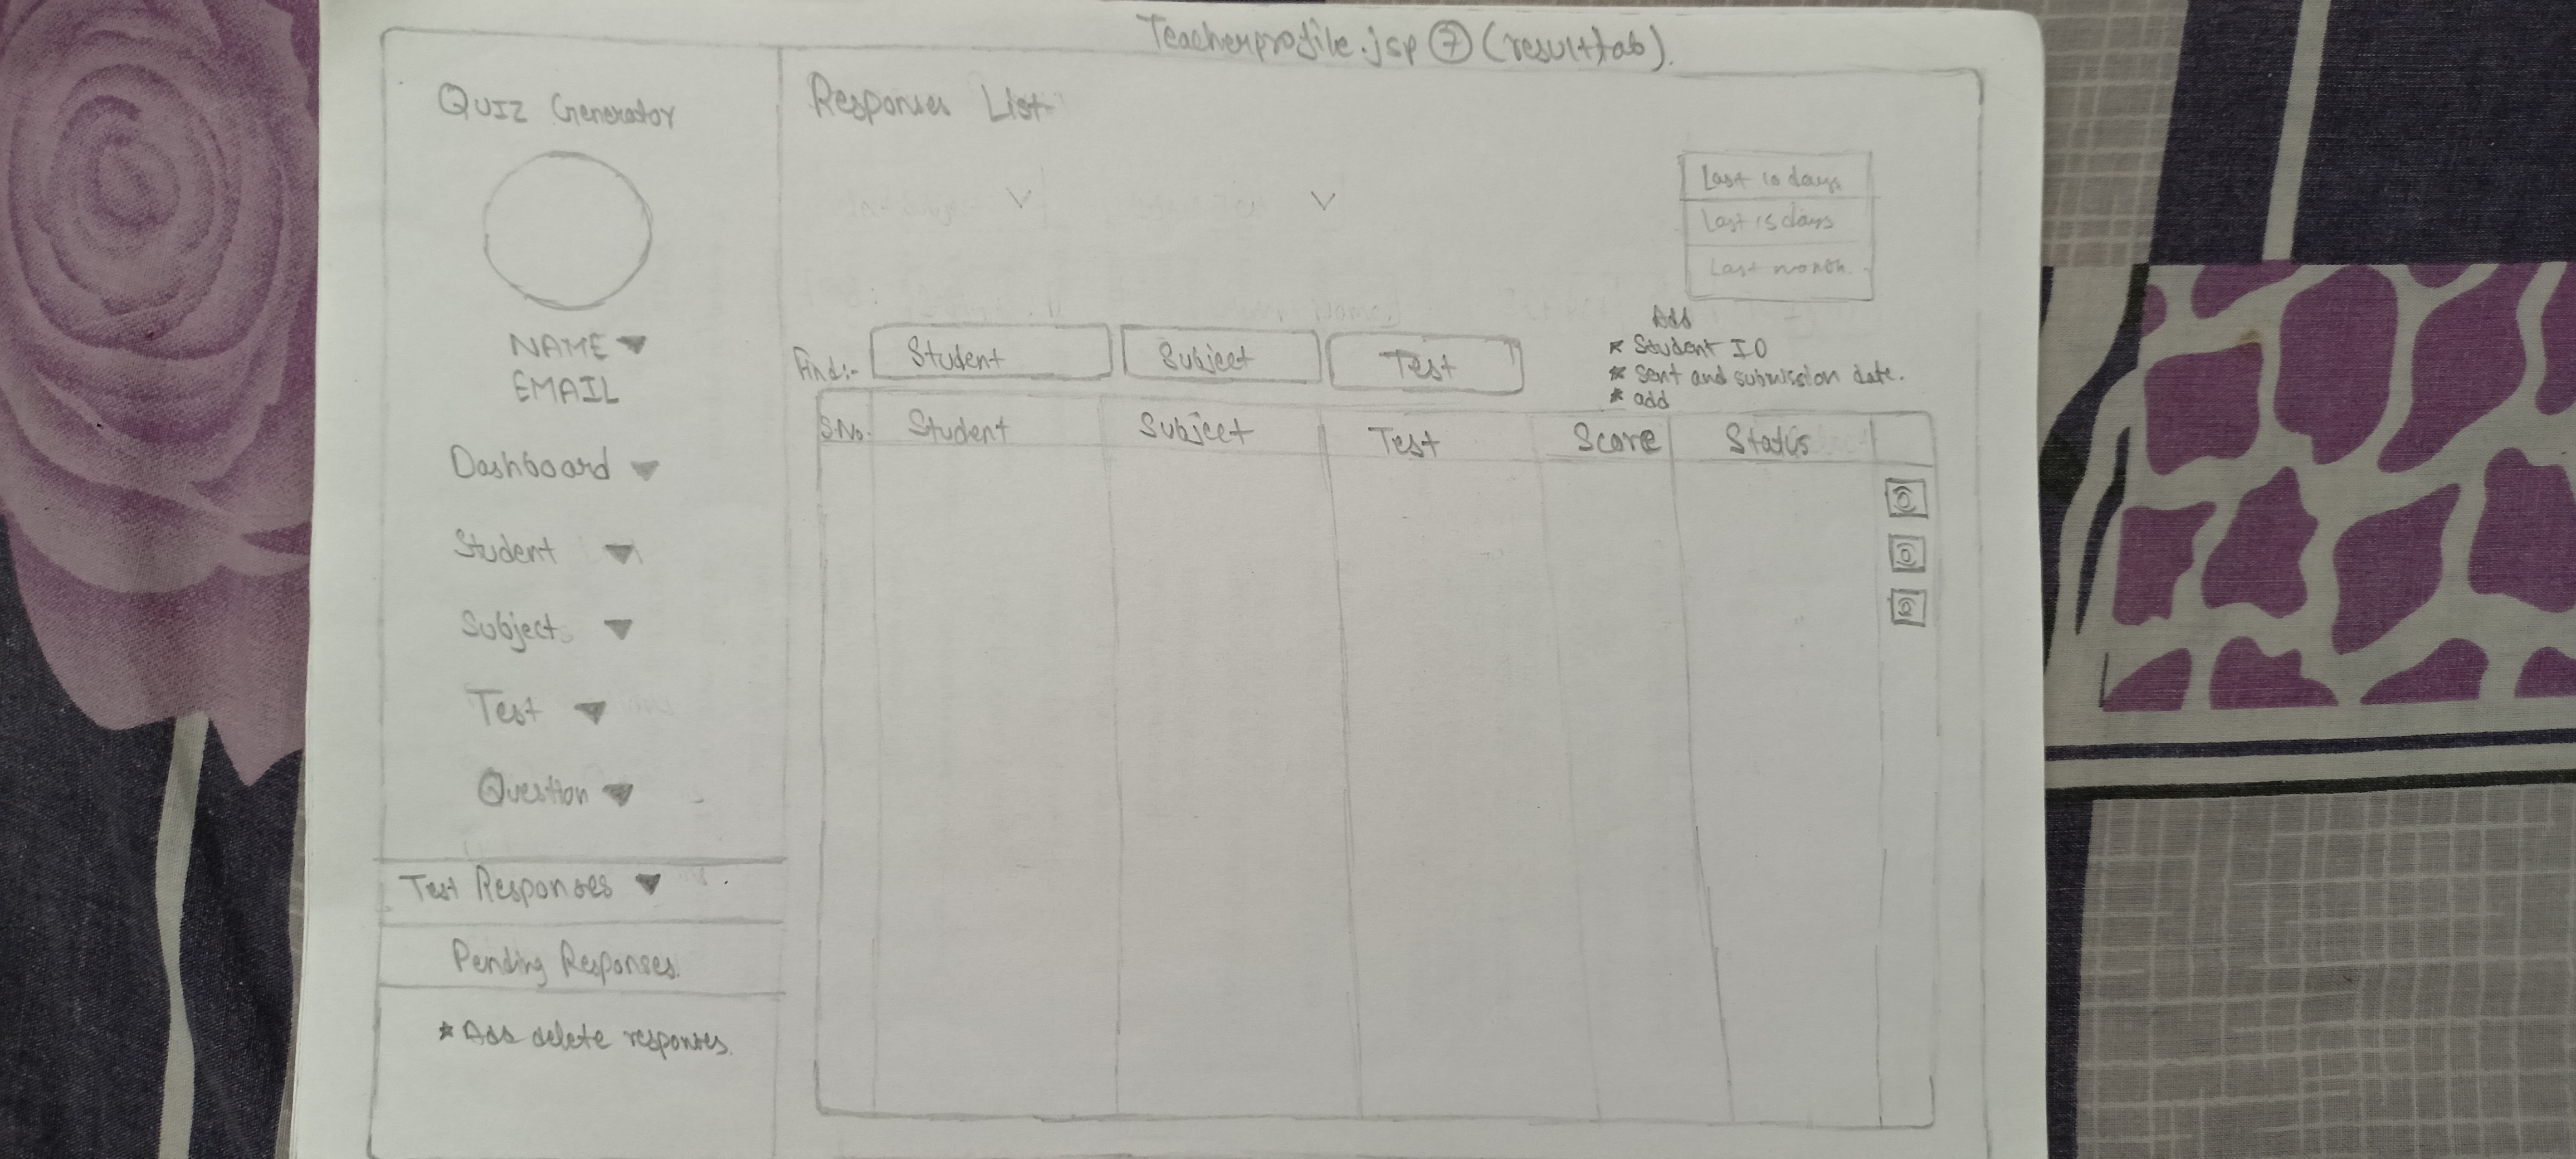 Teacherprofile.jsp ⑦ (result tab).
Quiz Generator
NAME
EMAIL
Dashboard
Student
Subject
Test
Question
Test Responses
Pending Responses.
* Add delete responses.
Responses List
Last 10 days
Last 15 days
Last month.
Add
* Student ID
* Sent and submission date.
* add
Find:- Student Subject Test
S.No. Student Subject Test Score Status